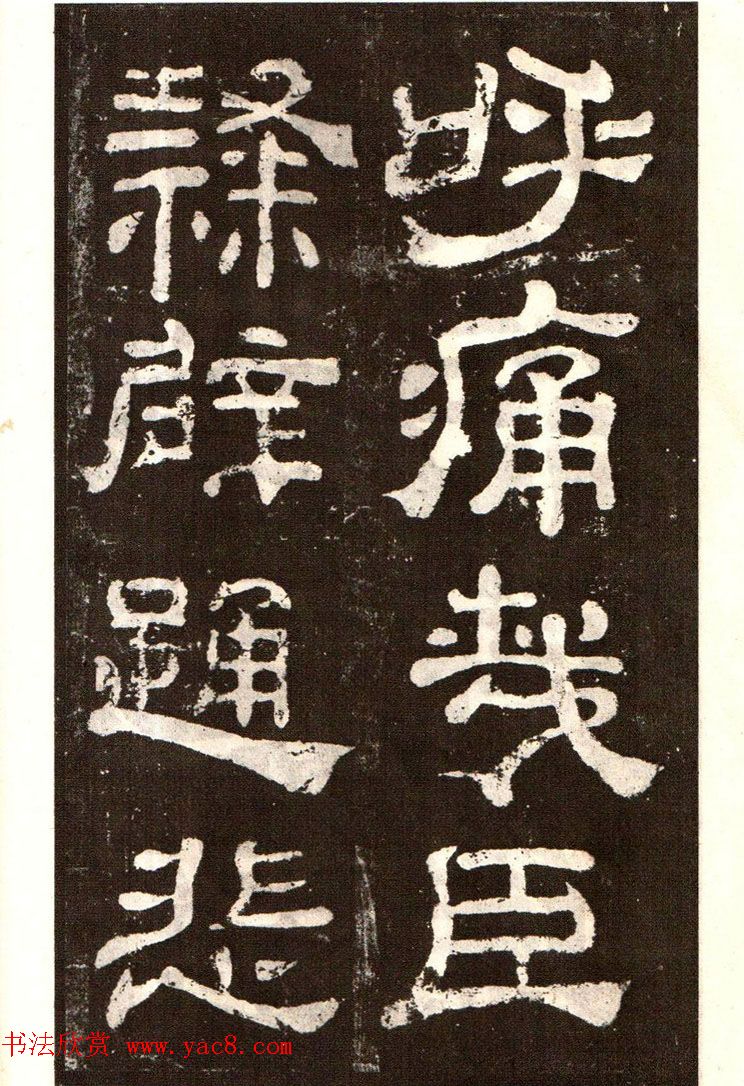 呼痛哉臣
隸辟踊悲
书法欣赏 www.yac8.com